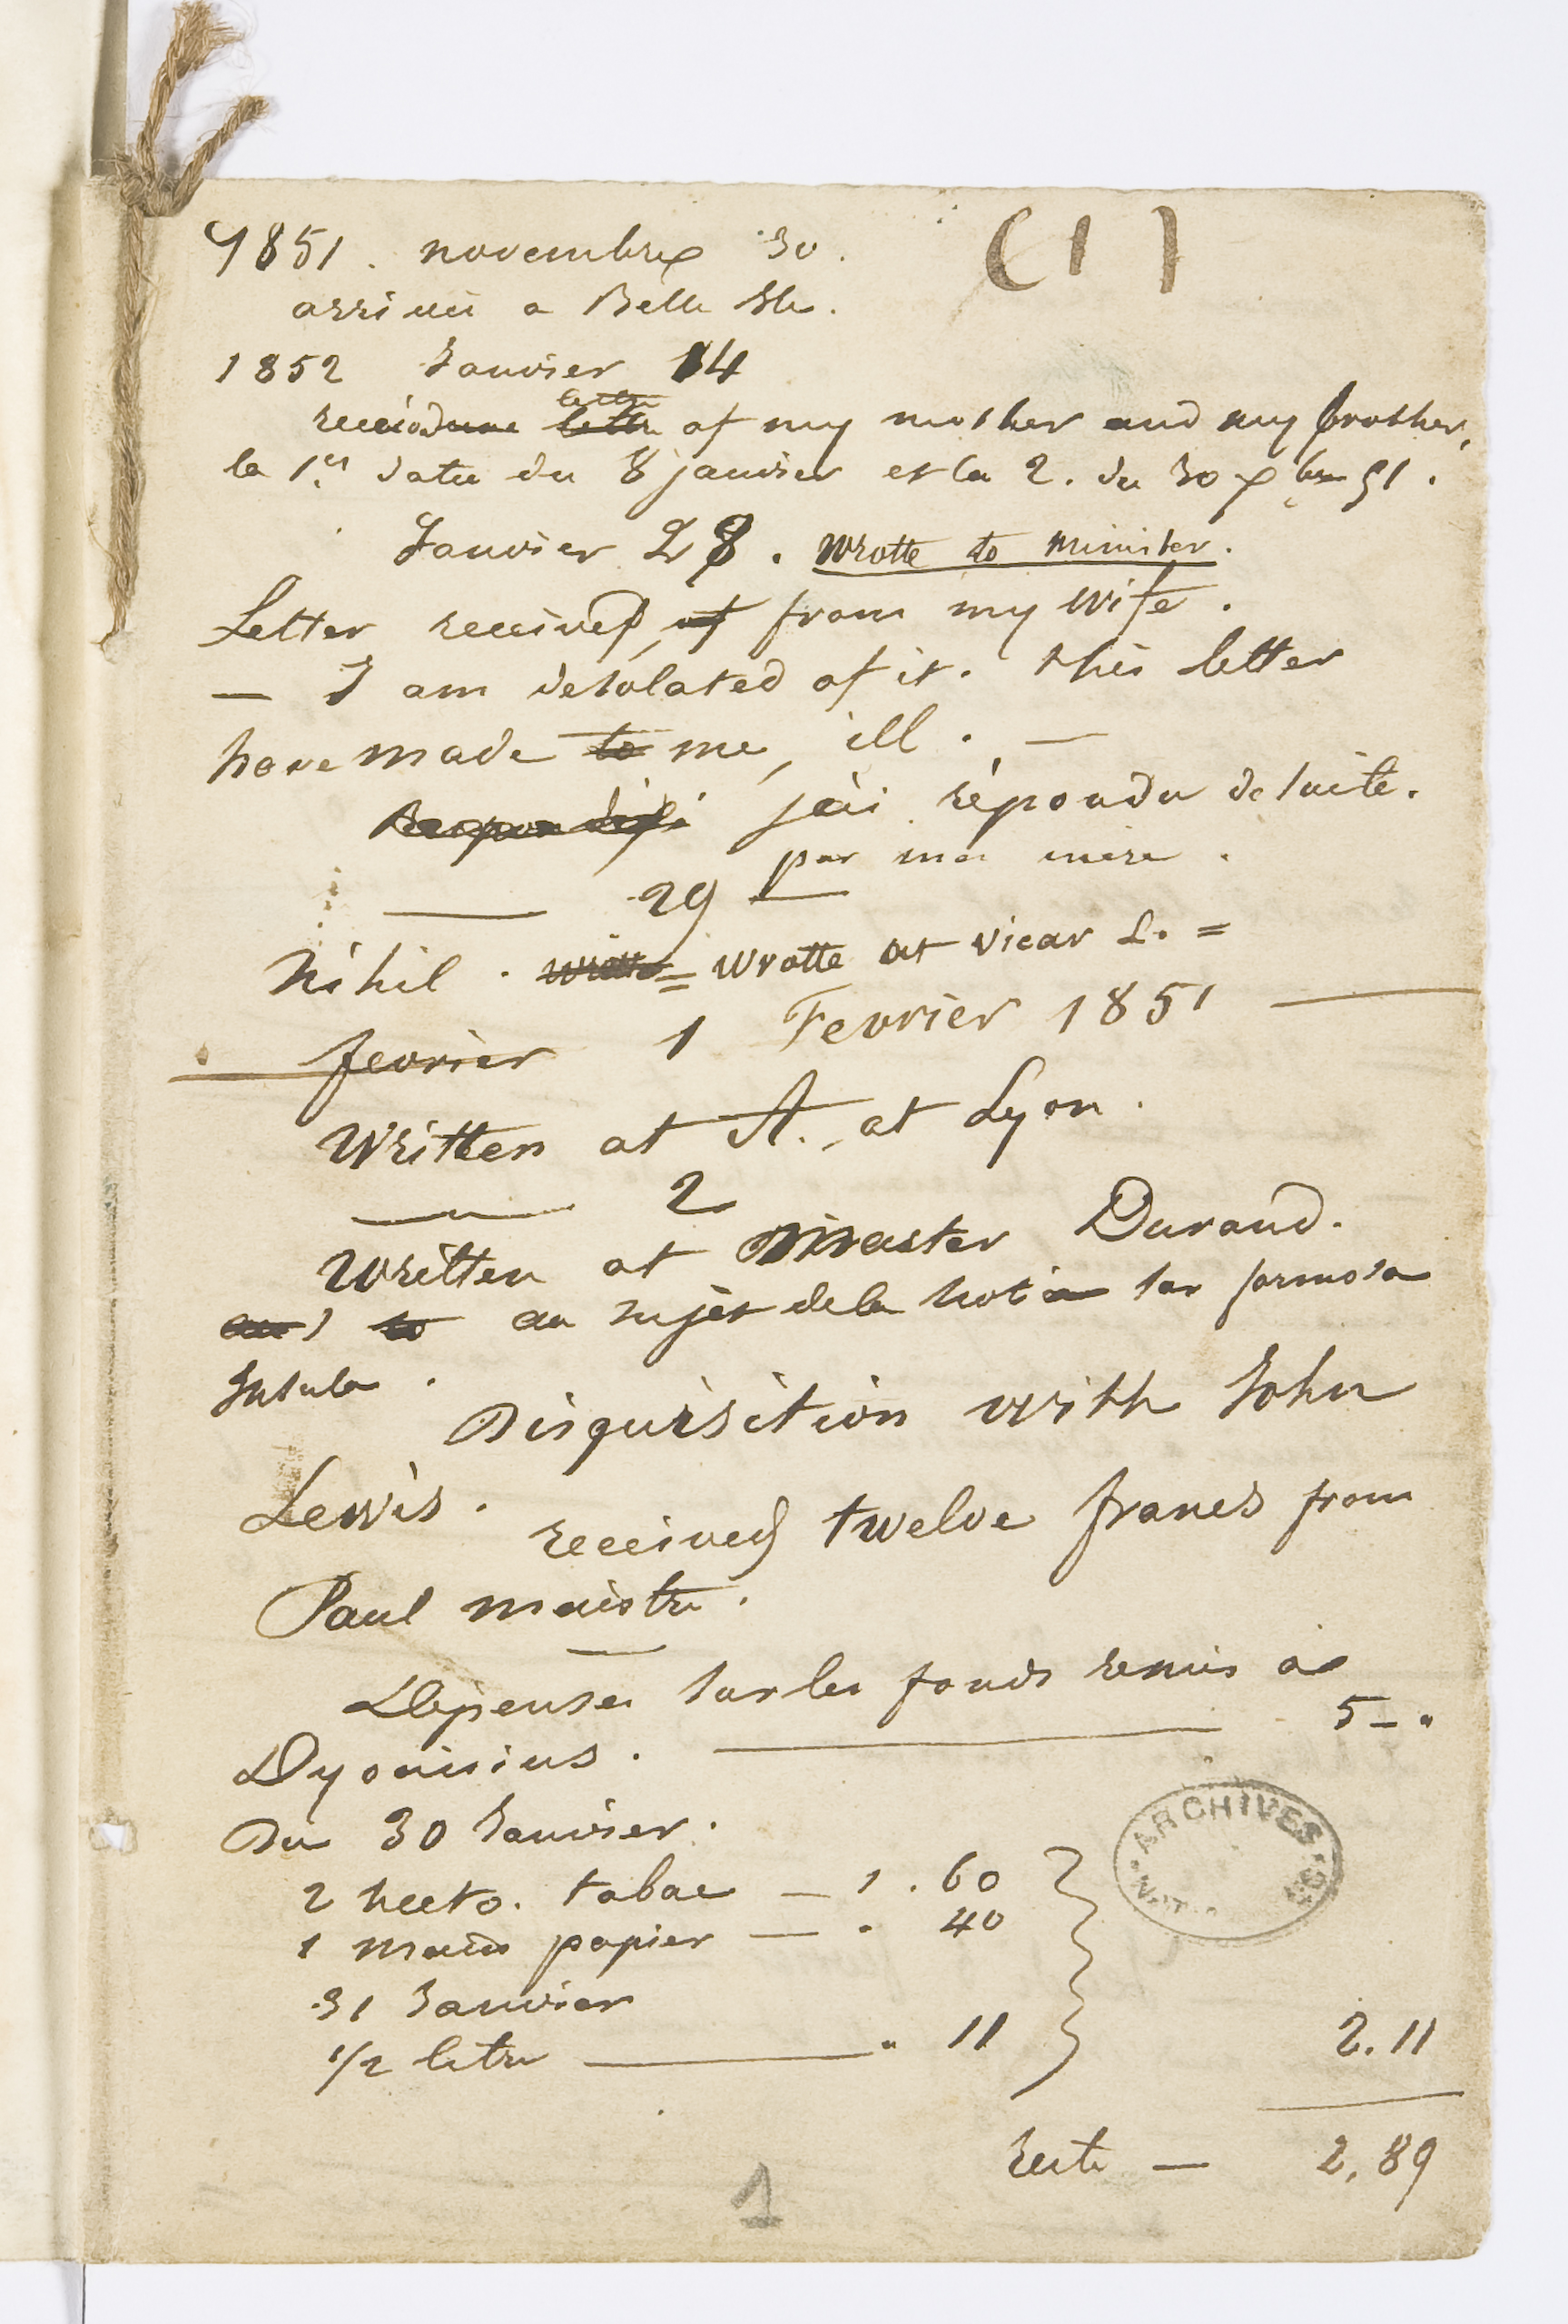 1851. novembre 30. (1)
arrivée a Belle Ile.
1852 Janvier 14
lettre
received une lettre of my mother and my brother,
la 1re datée du 8 janvier et la 2. du 30 xbre 51.
Janvier 28. wrotte to minister.
Letter received, of from my wife.
— I am desolated of it. this letter
have made to me, ill. —
j'ai répondu de suite.
par ma mère.
— 29 —
Nihil. wrotte = wrotte at vicar L. =
fevrier 1 Fevrier 1851 —
Written at A., at Lyon.
— 2
Written at Master Durand.
and to au sujet de la notice sur formosa
Insula.
Disquisition with John
Lewis.
received twelve francs from
Paul maistre.
Depenses sur les fonds remis à
Dyonisius. — 5 - "
Du 30 Janvier.
2 hecto. tabac — 1. 60
1 main papier — " 40
31 Janvier
1/2 litre — " 11 2.11
reste — 2,89
ARCHIVES
1